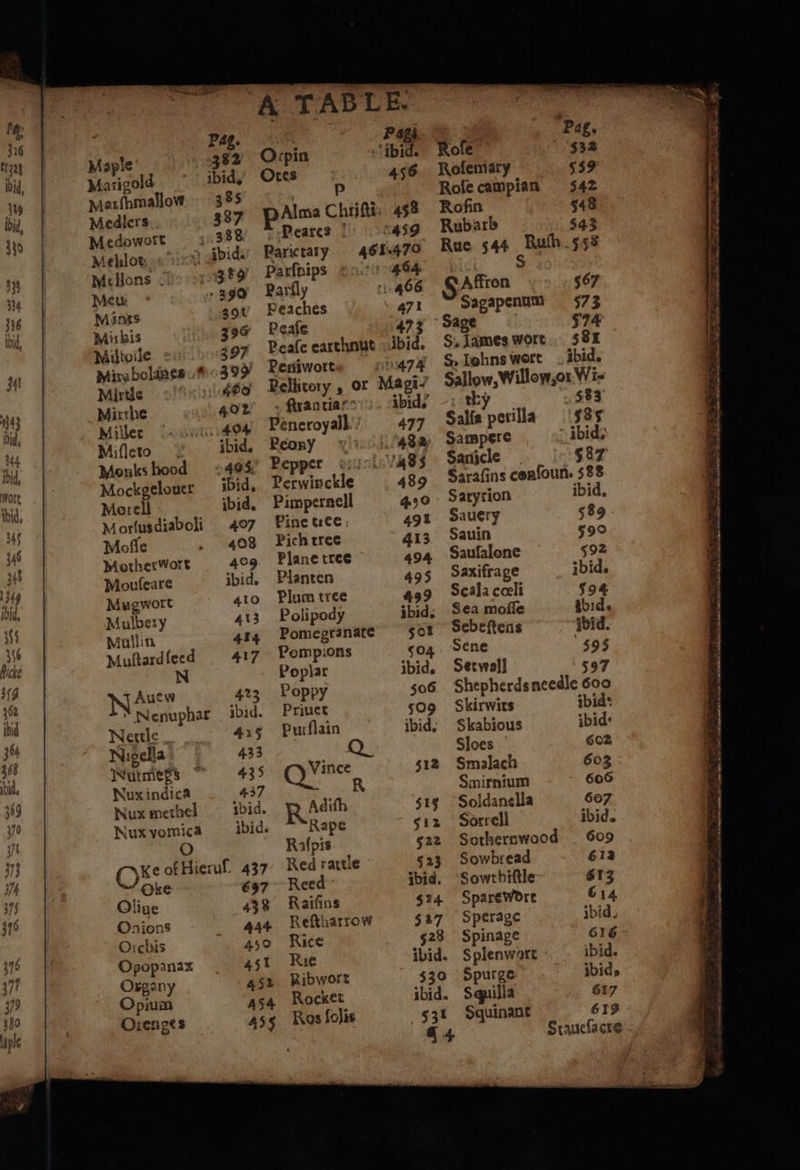 A TABLE.
Pag.
Maple 382
Marigold ibid,
Marſhmallow 385
Medlers 387
Medowort 388
Melilot ibid.
Mellons 389
Meu 390
Mints 391
Misbis 396
Miltoile 397
Mirabolanes 399
Mirtle 400
Mirrhe 402
Millet 404
Miſleto ibid.
Monkshood 405
Mockgelouer ibid.
Morell ibid.
Morſusdiaboli 407
Moſſe 408
MotherWort 409
Mouſeare ibid.
Mugwort 410
Mulbery 413
Mullin 414
Muſtardſeed 417
N
NAuew 423
Nenuphar ibid.
Nettle 425
Nigella 433
Nutmegs 435
Nuxindica 437
Nux methel ibid.
Nuxvomica ibid.
O
OKe of Hieruſ. 437
Oke 697
Oliue 438
Onions 444
Orchis 450
Opopanax 451
Organy 452
Opium 454
Orenges 455
Pag.
Orpin ibid.
Otes 456
P
PAlma Chriſti. 458
Peares 459
Parietary 461.470
Parſnips 464
Parſly 466
Peaches 471
Peaſe 473
Peaſe earthnut ibid.
Peniworte 474
Pellitory, or Magi-
ſtrantia ibid.
Peneroyall 477
Peony 482
Pepper 485
Perwinckle 489
Pimpernell 490
Pine tree, 491
Pichtree 413
Plane tree 494
Planten 495
Plum tree 499
Polipody ibid;
Pomegranate 501
Pompions 504
Poplar ibid,
Poppy 506
Priuet 509
Purſlain ibid;
Q
QVince 512
R
RAdiſh 515
Rape 512
Raſpis 522
Red rattle 523
Reed ibid.
Raiſins 524
Reſtharrow 527
Rice 528
Rie ibid.
Ribwort 530
Rocket ibid.
Ros ſolis 531
Pag.
Roſe 532
Roſemary 539
Roſe campian 542
Roſin 548
Rubarb 543
Rue 544 Ruſh 558
S
SAffron 567
Sagapenum 573
Sage 574
S. Iames wort 581
S. Iohns wort ibid.
Sallow, Willow, or Wi-
thy 583
Salſa perilla 585
Sampere ibid;
Sanicle 587
Saraſins conſoun. 588
Satyrion ibid,
Sauery 589
Sauin 590
Sauſalone 592
Saxifrage ibid.
Scala cœli 594
Sea moſſe ibid.
Sebeſtens ibid.
Sene 595
Setwall 597
Shepherdsneedle 600
Skirwits ibid:
Skabious ibid:
Sloes 602
Smalach 603
Smirnium 606
Soldanella 607
Sorrell ibid.
Sothernwood 609
Sowbread 612
Sowthiſtle 613
SpareWort 614
Sperage ibid,
Spinage 616
Splenwort ibid.
Spurge ibid,
Squilla 617
Squinant 619
¶ 4
Stauesacre